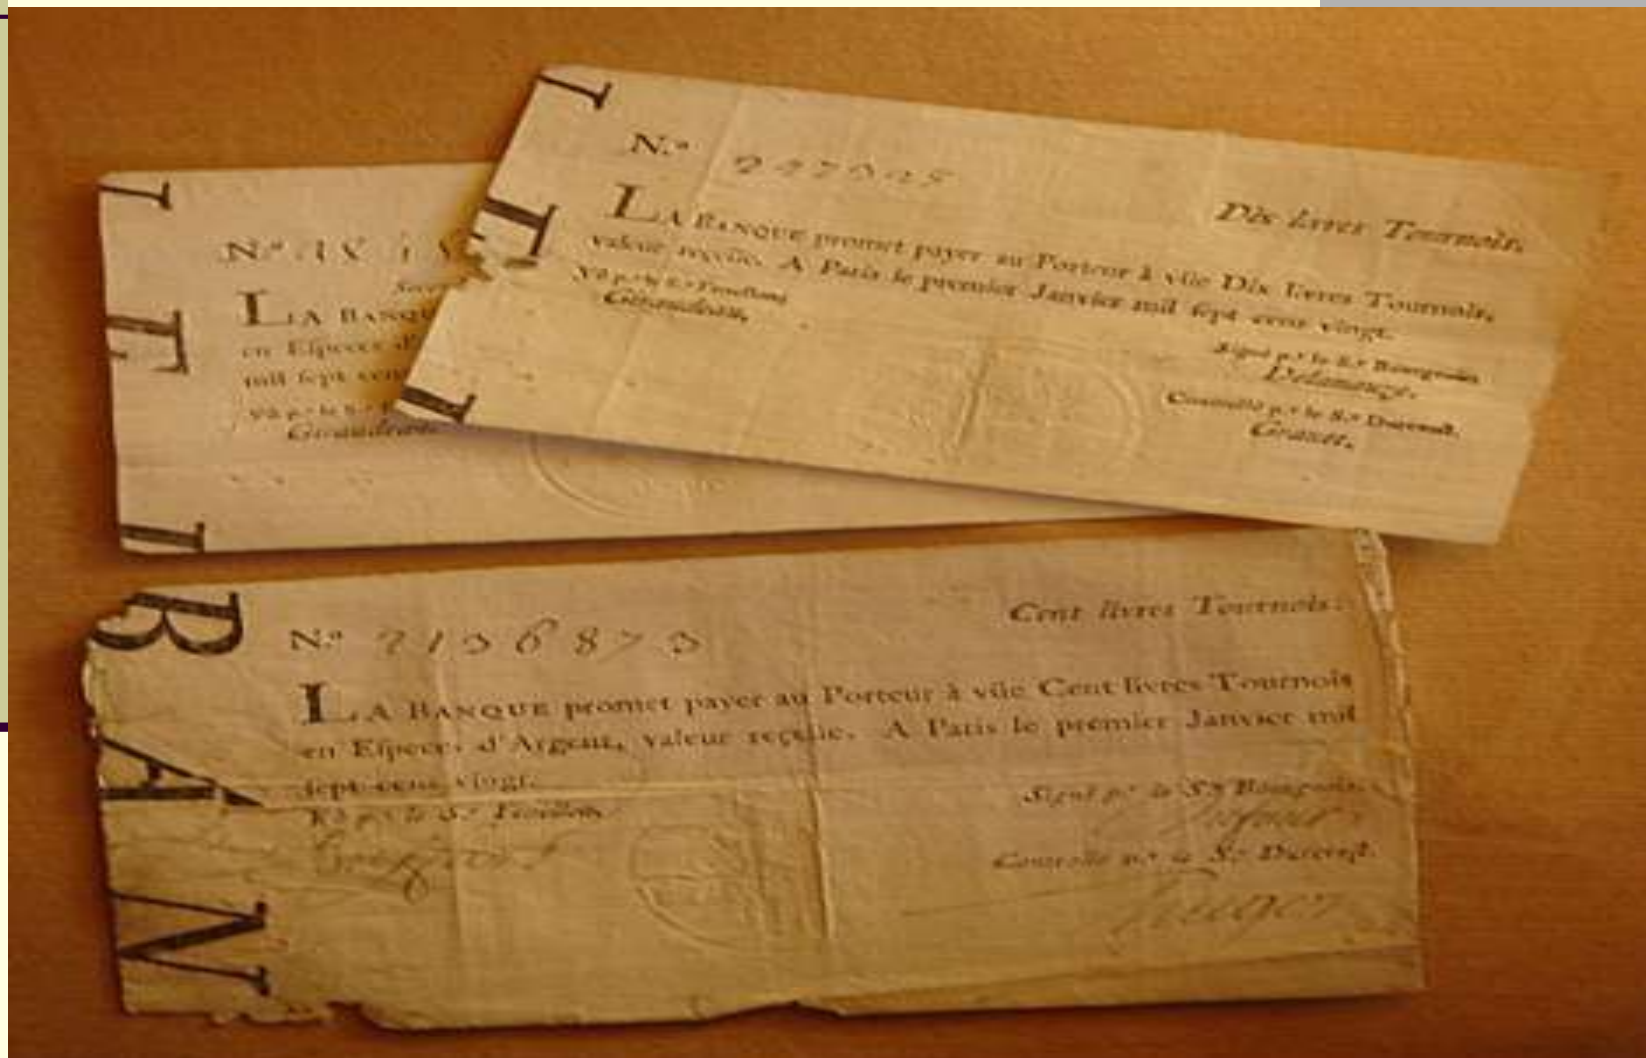 N.º
Dix livres Tournois.
LA BANQUE promet payer au Porteur à vûe Dix livres Tournois,
valeur reçûe. A Paris le premier Janvier mil sept cens vingt.
Vû p.r le S.r Fenellon
Giraudeau.
Signé p.r le S.r Bourgeois
Delanauze.
Controllé p.r le S.r Durevest.
Granet.
N.º
LA BANQU
en Especes d'
mil sept cens
Vû p.r le S.r
Giraudeau.
BAN
N.º
Cent livres Tournois.
LA BANQUE promet payer au Porteur à vûe Cent livres Tournois
en Especes d'Argent, valeur reçûe. A Paris le premier Janvier mil
sept cens vingt.
Vû p.r le S.r Fenellon
Signé p.r le S.r Bourgeois.
Controllé p.r le S.r Durevest.